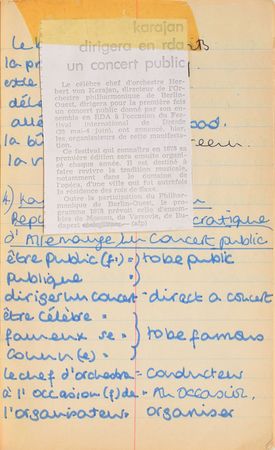 karajan
dirigera en rda
un concert public
Le célèbre chef d'orchestre Her-
bert von Karajan, directeur de l'Or-
chestre philharmonique de Berlin-
Ouest, dirigera pour la première fois
un concert public donné par son en-
semble en RDA à l'occasion du Fes-
tival international de Dresde
mai-4 juin), ont annoncé, hier,
les organisateurs de cette manifesta-
tion.
Ce festival qui connaîtra en 1978 sa
première édition sera ensuite organi-
sé chaque année. Il est destiné à
faire revivre la tradition musicale,
notamment dans le domaine de
l'opéra, d'une ville qui fut autrefois
la résidence des rois de Saxe.
Outre la participation du Philhar-
monique de Berlin-Ouest, le pro-
gramme 1978 prévoit celle d'ensem-
bles de Moscou, de Varsovie, de Bu-
dapest (afp)
d'Allemagne un concert public
être public (f.) = to be public
publique
diriger un concert - direct a concert
être célèbre
fameux se = to be famous
connu (e)
le chef d'orchestre = conducteur
à l'occasion (f) de = An Occasion.
l'organisateur organiser